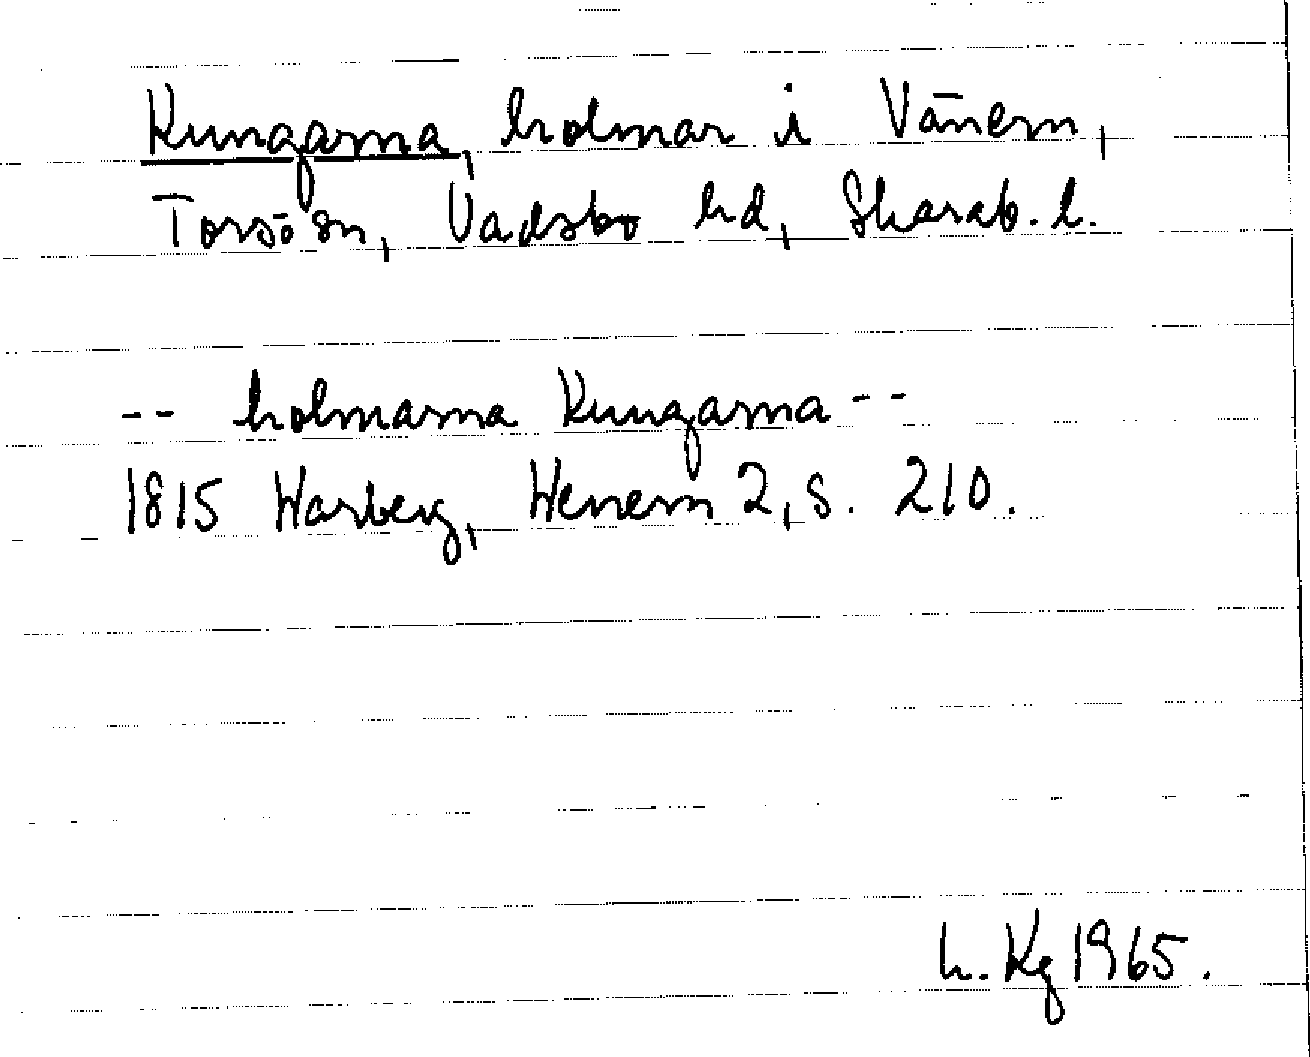 Kungarna, holmar i Vänern,
Torsö sn, Vadsbo hd, Skarab. l.
-- holmarna Kungarna --
1815 Warberg, Wenern 2, s. 210.
h. Kg 1965.